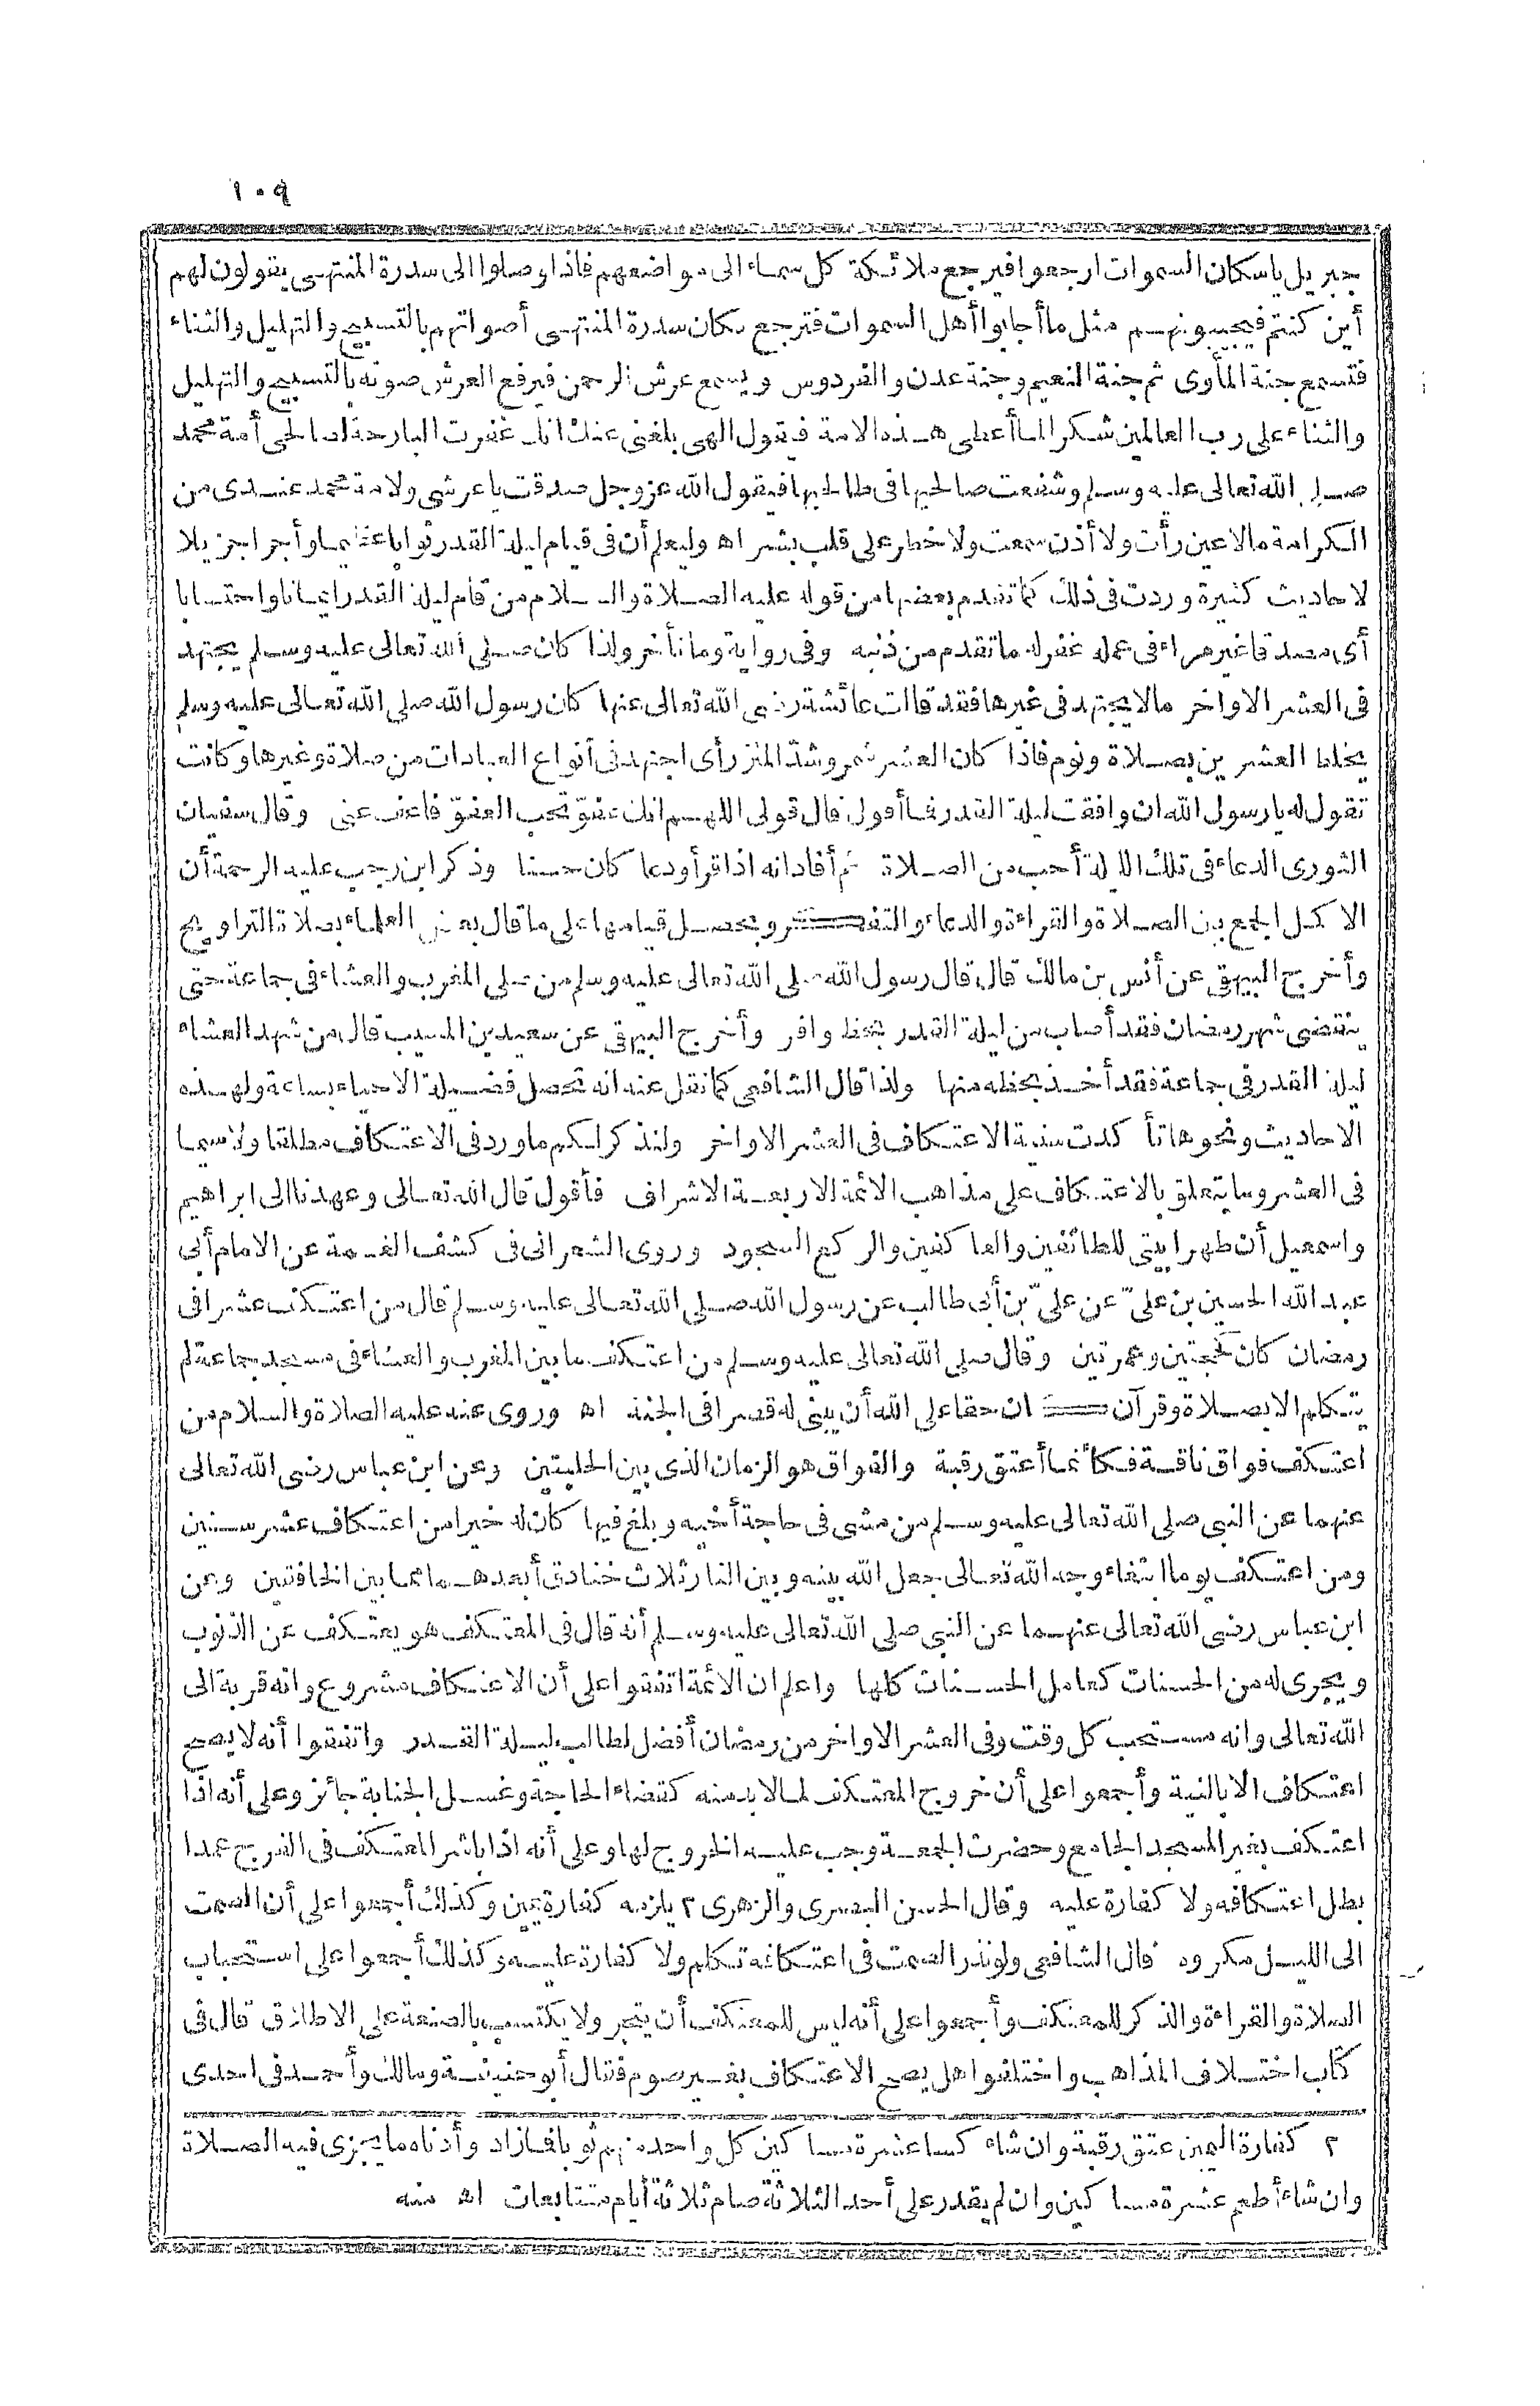 ١٠٩
جبريل ياسكان السموات ارجعوا فيرجع ملائكة كل سماء الى مواضعهم فاذا وصلوا الى سدرة المنتهى يقولون لهم
أين كنتم فيجيبونهم مثل ما أجابوا أهل السموات فترجع سكان سدرة المنتهى أصواتهم بالتسبيح والتهليل والثناء
فتسمع جنة المأوى ثم جنة النعيم وجنة عدن والفردوس ويسمع عرش الرحمن فيرفع العرش صوته بالتسبيح والتهليل
والثناء على رب العالمين شكرا لما أعطى هذه الامة فيقول الهى بلغنى عنك انك غفرت البارحة لصالحى أمة محمد
صلى الله تعالى عليه وسلم وشفعت صالحيها فى طالحيها فيقول الله عز وجل صدقت ياعرشى ولامة محمد عندى من
الكرامة مالاعين رأت ولا أذن سمعت ولا خطر على قلب بشر اه وليعلم أن فى قيام ليلة القدر ثوابا عظيما وأجرا جزيلا
لاحاديث كثيرة وردت فى ذلك كما تقدم بعضها من قوله عليه الصلاة والسلام من قام ليلة القدر ايمانا واحتسابا
أى مصدقا غير مراء فى عمله غفر له ما تقدم من ذنبه وفى رواية وما تأخر ولذا كان صلى الله تعالى عليه وسلم يجتهد
فى العشر الاواخر مالا يجتهد فى غيرها فقد قالت عائشة رضى الله تعالى عنها كان رسول الله صلى الله تعالى عليه وسلم
يخلط العشرين بصلاة ونوم فاذا كان العشر شمر وشدّ المئزر أى اجتهد فى أنواع العبادات من صلاة وغيرها وكانت
تقول له يارسول الله ان وافقت ليلة القدر فما أقول قال قولى اللهم انك عفوّ تحب العفو فاعف عنى وقال سفيان
الثورى الدعاء فى تلك الليلة أحب من الصلاة ثم أفاد انه اذا قرأ ودعا كان حسنا وذكر ابن رجب عليه الرحمة أن
الاكمل الجمع بين الصلاة والقراءة والدعاء والتفكر ويحصل قيامها على ما قال بعض العلماء بصلاة التراويح
وأخرج البيهقى عن أنس بن مالك قال قال رسول الله صلى الله تعالى عليه وسلم من صلى المغرب والعشاء فى جماعة حتى
ينقضى شهر رمضان فقد أصاب من ليلة القدر بحظ وافر وأخرج البيهقى عن سعيد بن المسيب قال من شهد العشاء
ليلة القدر فى جماعة فقد أخذ بحظه منها ولذا قال الشافعى كما نقل عنه انه تحصل فضيلة الاحياء بساعة ولهذه
الاحاديث ونحوها تأكدت سنية الاعتكاف فى العشر الاواخر ولنذكر لكم ما ورد فى الاعتكاف مطلقا ولاسيما
فى العشر وما يتعلق بالاعتكاف على مذاهب الائمة الاربعة الاشراف فأقول قال الله تعالى وعهدنا الى ابراهيم
واسمعيل أن طهرا بيتى للطائفين والعاكفين والركع السجود وروى الشعرانى فى كشف الغمة عن الامام أبى
عبد الله الحسين بن علىّ عن علىّ بن أبى طالب عن رسول الله صلى الله تعالى عليه وسلم قال من اعتكف عشرا فى
رمضان كان كحجتين وعمرتين وقال صلى الله تعالى عليه وسلم من اعتكف ما بين المغرب والعشاء فى مسجد جماعة لم
يتكلم الا بصلاة وقرآن كان حقا على الله أن يبنى له قصرا فى الجنة اه وروى عنه عليه الصلاة والسلام من
اعتكف فواق ناقة فكأنما أعتق رقبة والفواق هو الزمان الذى بين الحلبتين وعن ابن عباس رضى الله تعالى
عنهما عن النبى صلى الله تعالى عليه وسلم من مشى فى حاجة أخيه وبلغ فيها كان له خيرا من اعتكاف عشر سنين
ومن اعتكف يوما ابتغاء وجه الله تعالى جعل الله بينه وبين النار ثلاث خنادق أبعدهما مما بين الخافقين وعن
ابن عباس رضى الله تعالى عنهما عن النبى صلى الله تعالى عليه وسلم أنه قال فى المعتكف هو يعتكف عن الذنوب
ويجرى له من الحسنات كعامل الحسنات كلها واعلم ان الائمة اتفقوا على أن الاعتكاف مشروع وانه قربة الى
الله تعالى وانه مستحب كل وقت وفى العشر الاواخر من رمضان أفضل لطالب ليلة القدر واتفقوا أنه لا يصح
اعتكاف الا بالنية وأجمعوا على أن خروج المعتكف لما لابد منه كقضاء الحاجة وغسل الجنابة جائز وعلى أنه اذا
اعتكف بغير المسجد الجامع وحضرت الجمعة وجب عليه الخروج لها وعلى أنه اذا باشر المعتكف فى الفرج عمدا
بطل اعتكافه ولا كفارة عليه وقال الحسن البصرى والزهرى ٢ يلزمه كفارة يمين وكذلك أجمعوا على أن الصمت
الى الليل مكروه قال الشافعى ولو نذر الصمت فى اعتكافه تكلم ولا كفارة عليه وكذلك أجمعوا على استحباب
الصلاة والقراءة والذكر للمعتكف وأجمعوا على أنه ليس للمعتكف أن يتجر ولا يكتسب بالصنعة على الاطلاق قال فى
كتاب اختلاف المذاهب واختلفوا هل يصح الاعتكاف بغير صوم فقال أبو حنيفة ومالك وأحمد فى احدى
٢ كفارة اليمين عتق رقبة وان شاء كسا عشرة مساكين كل واحد منهم ثوبا فما زاد وأدناه ما يجزى فيه الصلاة
وان شاء أطعم عشرة مساكين وان لم يقدر على أحد الثلاثة صام ثلاثة أيام متتابعات اه منه